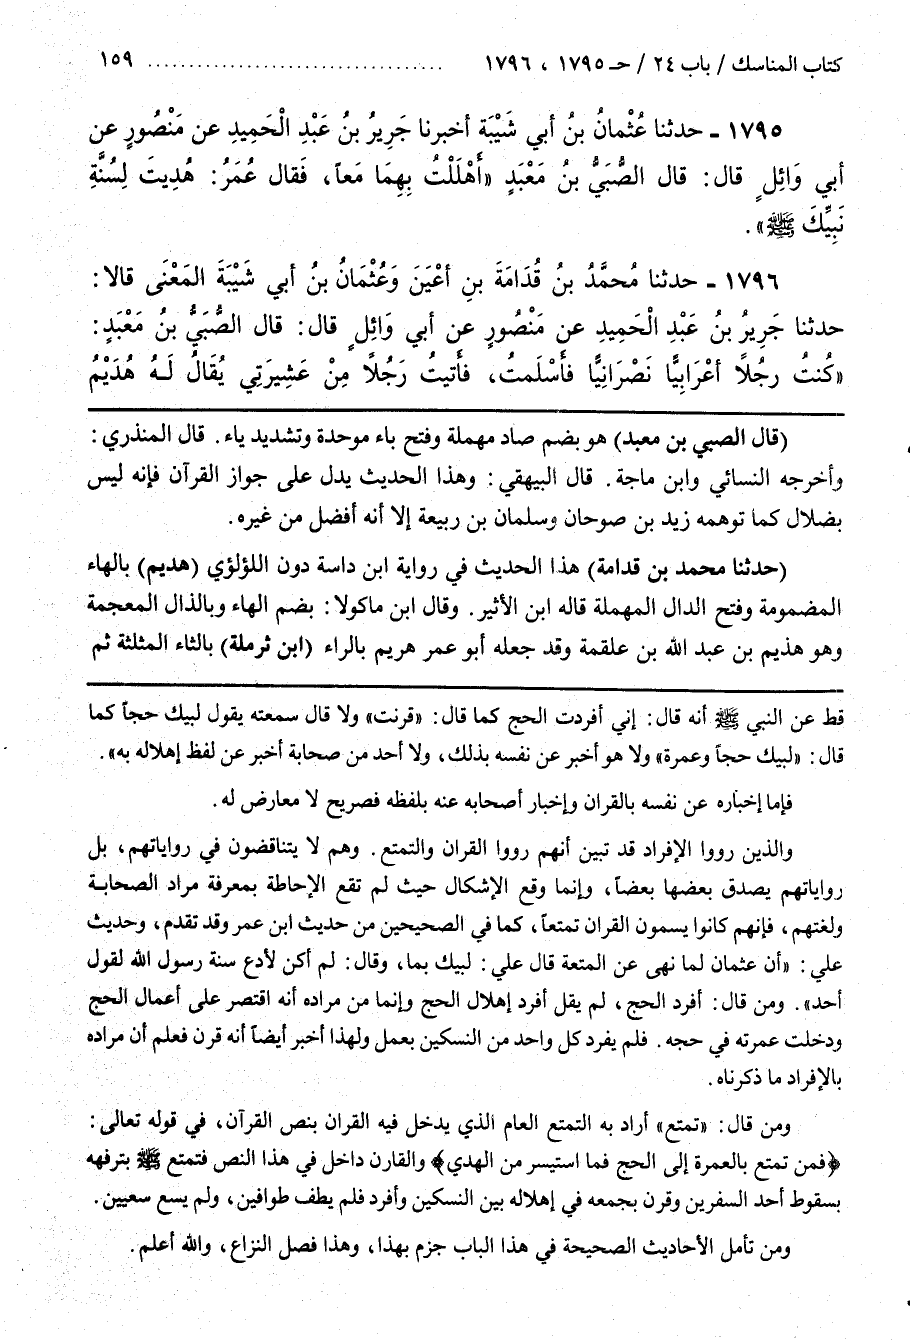 كتاب المناسك / باب ٢٤ / حـ ١٧٩٥ ، ١٧٩٦ .................................. ١٥٩
١٧٩٥ ـ حدثنا عُثْمانُ بنُ أبي شَيْبَة أخبرنا جَرِيرُ بنُ عَبْدِ الْحَمِيدِ عن مَنْصُورٍ عن
أبي وَائِلٍ قال: قال الصُّبَيُّ بنُ مَعْبَدٍ «أَهْلَلْتُ بِهِمَا مَعاً، فَقال عُمَرُ: هُدِيتَ لِسُنَّةِ
نَبِيِّكَ ﷺ».
١٧٩٦ ـ حدثنا مُحمَّدُ بنُ قُدَامَةَ بنِ أعْيَنَ وَعُثْمَانُ بنُ أبي شَيْبَةَ المَعْنَى قالا:
حدثنا جَرِيرُ بنُ عَبْدِ الْحَمِيدِ عن مَنْصُورٍ عن أبي وَائِلٍ قال: قال الصُّبَيُّ بنُ مَعْبَدٍ:
«كُنتُ رجُلاً أعْرَابِيًّا نَصْرَانِيًّا فأَسْلَمتُ، فأَتيتُ رَجُلاً مِنْ عَشِيرَتِي يُقَالُ لَـهُ هُدَيْمُ
(قال الصبي بن معبد) هو بضم صاد مهملة وفتح باء موحدة وتشديد ياء. قال المنذري:
وأخرجه النسائي وابن ماجة. قال البيهقي: وهذا الحديث يدل على جواز القرآن فإنه ليس
بضلال كما توهمه زيد بن صوحان وسلمان بن ربيعة إلا أنه أفضل من غيره.
(حدثنا محمد بن قدامة) هذا الحديث في رواية ابن داسة دون اللؤلؤي (هديم) بالهاء
المضمومة وفتح الدال المهملة قاله ابن الأثير. وقال ابن ماكولا: بضم الهاء وبالذال المعجمة
وهو هذيم بن عبد الله بن علقمة وقد جعله أبو عمر هريم بالراء (ابن ثرملة) بالثاء المثلثة ثم
قط عن النبي ﷺ أنه قال: إني أفردت الحج كما قال: «قرنت» ولا قال سمعته يقول لبيك حجاً كما
قال: «لبيك حجاً وعمرة» ولا هو أخبر عن نفسه بذلك، ولا أحد من صحابة أخبر عن لفظ إهلاله به».
فإما إخباره عن نفسه بالقران وإخبار أصحابه عنه بلفظه فصريح لا معارض له.
والذين رووا الإفراد قد تبين أنهم رووا القران والتمتع. وهم لا يتناقضون في رواياتهم، بل
رواياتهم يصدق بعضها بعضاً، وإنما وقع الإشكال حيث لم تقع الإحاطة بمعرفة مراد الصحابـة
ولغتهم، فإنهم كانوا يسمون القران تمتعاً، كما في الصحيحين من حديث ابن عمر وقد تقدم، وحديث
علي: «أن عثمان لما نهى عن المتعة قال علي: لبيك بما، وقال: لم أكن لأدع سنة رسول الله لقول
أحد». ومن قال: أفرد الحج، لم يقل أفرد إهلال الحج وإنما من مراده أنه اقتصر على أعمال الحج
ودخلت عمرته في حجه. فلم يفرد كل واحد من النسكين بعمل ولهذا أخبر أيضاً أنه قرن فعلم أن مراده
بالإفراد ما ذكرناه.
ومن قال: «تمتع» أراد به التمتع العام الذي يدخل فيه القران بنص القرآن، في قوله تعالى:
﴿فمن تمتع بالعمرة إلى الحج فما استيسر من الهدي﴾ والقارن داخل في هذا النص فتمتع ﷺ بترفهه
بسقوط أحد السفرين وقرن بجمعه في إهلاله بين النسكين وأفرد فلم يطف طوافين، ولم يسع سعيين.
ومن تأمل الأحاديث الصحيحة في هذا الباب جزم بهذا، وهذا فصل النزاع، والله أعلم.